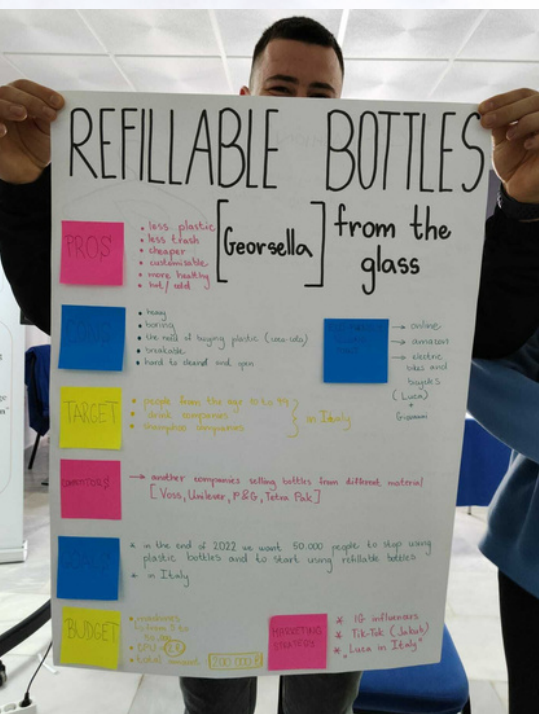 REFILLABLE BOTTLES
[Georsella] from the
glass
PROS
• less plastic
• less trash
• cheaper
• customisable
• more healthy
• hot/cold
CONS
• heavy
• boring
• the need of buying plastic (coca-cola)
• breakable
• hard to and open
→ online
→ amazon
→ electric
bikes and
bicycles
(Luca)
+
Giovanni
TARGET
• people from the age 10 to 99
• drink companies
• shampoo companies
in Italy
→ another companies selling bottles from different material
[Voss, Unilever, P&G, Tetra Pak]
GOALS
* in the end of 2022 we want 50.000 people to stop using
plastic bottles and to start using refillable bottles
* in Italy
BUDGET
• machines
from 5 to
• total amount 200 000 €
MARKETING
STRATEGY
* IG influencers
* Tik-Tok (Jakub)
* „Luca in Italy"